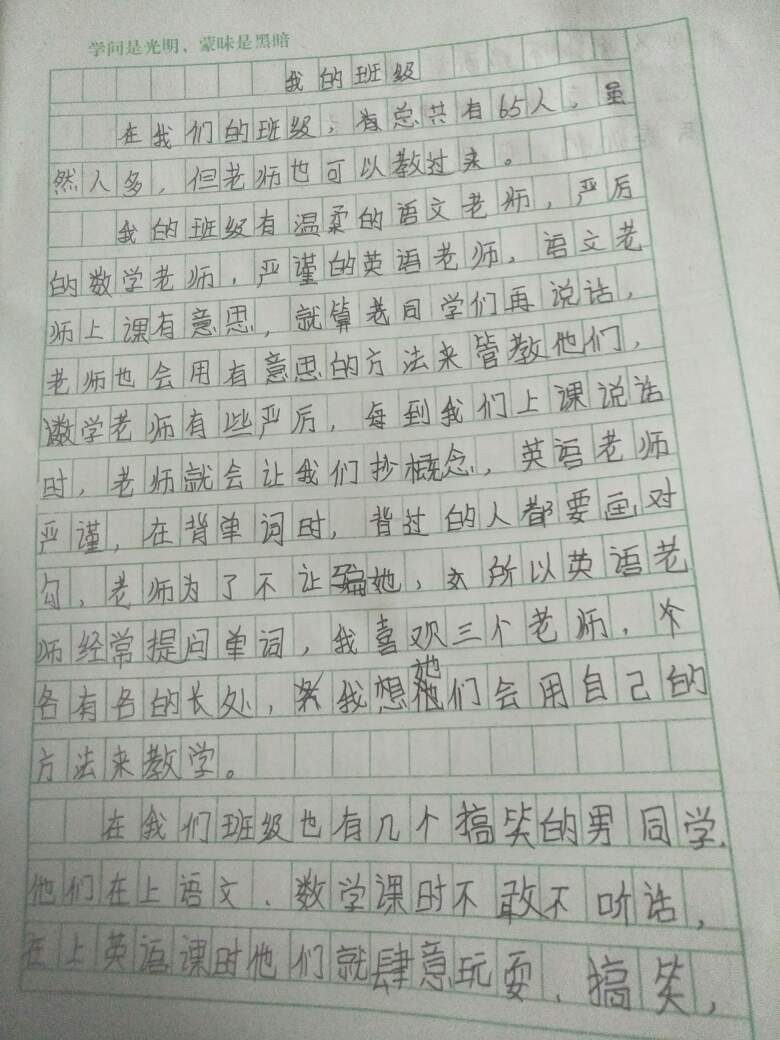 学问是光明，蒙昧是黑暗
我的班级
在我们的班级，有总共有65人，虽
然人多，但老师也可以教过来。
我的班级有温柔的语文老师，严厉
的数学老师，严谨的英语老师，语文老
师上课有意思，就算老同学们再说话，
老师也会用有意思的方法来管教他们，
数学老师有些严厉，每到我们上课说话
时，老师就会让我们抄概念，英语老师
严谨，在背单词时，背过的人都要画对
勾，老师为了不让骗她，所以英语老
师经常提问单词，我喜欢三个老师，个
各有各的长处，我想她们会用自己的
方法来教学。
在我们班级也有几个搞笑的男同学，
他们在上语文、数学课时不敢不听话，
在上英语课时他们就肆意玩耍、搞笑，